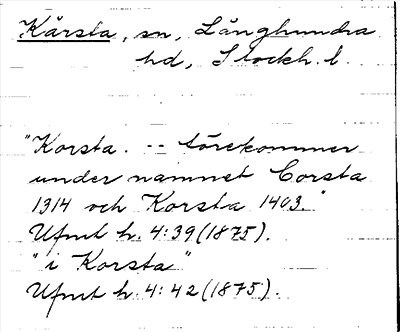 Kårsta, sn, Långhundra
hd, Stockh. l.
"Korsta. -- förekommer
under namnet Corsta
1314 och Korsta 1403."
Ufmt h. 4:39 (1875).
"i Korsta"
Ufmt h. 4:42 (1875).